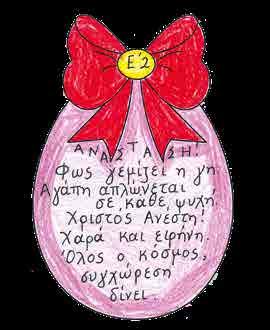 Ε΄2
ΑΝΑΣΤΑΣΗ!
Φως γεμίζει η γη
Αγάπη απλώνεται
σε κάθε ψυχή,
Χριστός Ανέστη!
Χαρά και ειρήνη.
Όλος ο κόσμος,
συγχώρεση
δίνει.